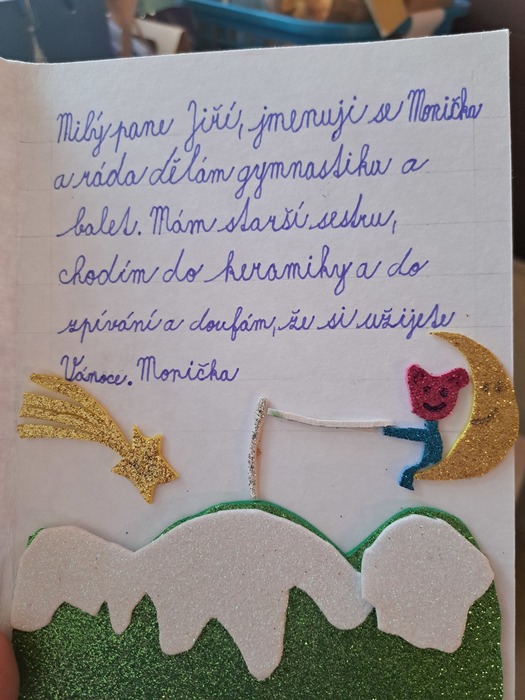 Milý pane Jiří, jmenuji se Monička
a ráda dělám gymnastiku a
balet. Mám starší sestru,
chodím do keramiky a do
zpívání a doufám, že si užijete
Vánoce. Monička